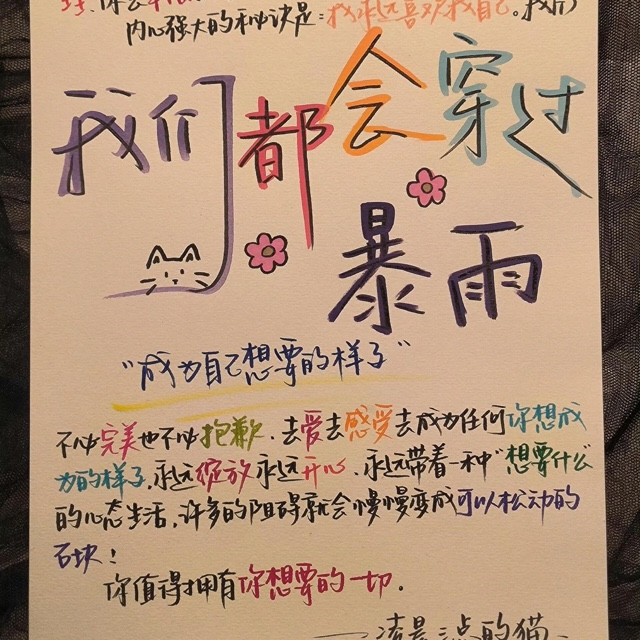 内心强大的秘诀是：我永远喜欢我自己。我们
我们都会穿过
暴雨
“成为自己想要的样子”
不必完美也不必抱歉．去爱去感受去成为任何你想成
为的样子．永远绽放永远开心．永远带着一种“想要什么”
的心态生活，许多的阻碍就会慢慢变成可以松动的
石块！
你值得拥有你想要的一切．
——凌晨三点的猫